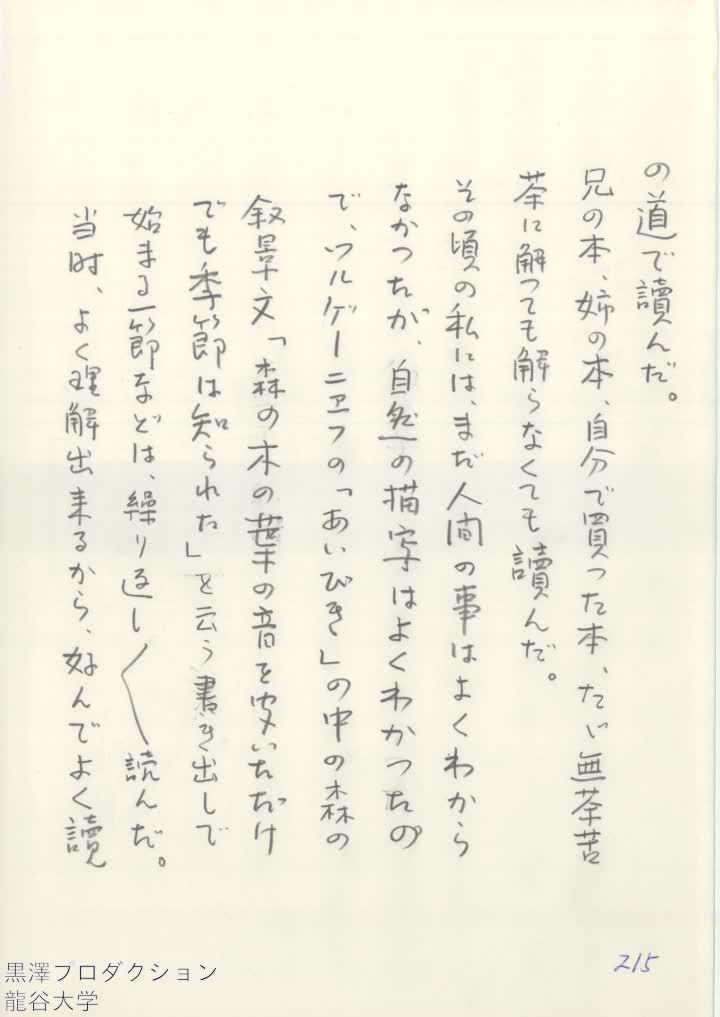 の道で讀んだ。
兄の本、姉の本、自分で買った本、たゞ無茶苦
茶に解つても解らなくても讀んだ。
その頃の私には、まだ人間の事はよくわから
なかつたが、自然の描写はよくわかつたの
で、ツルゲーニェフの「あいびき」の中の森の
叙景文「森の木の葉の音を聞いただけ
でも季節は知られた」と云う書き出しで
始まる一節などは、繰り返し〳〵読んだ。
当時、よく理解出来るから、好んでよく讀
215
黒澤プロダクション
龍谷大学